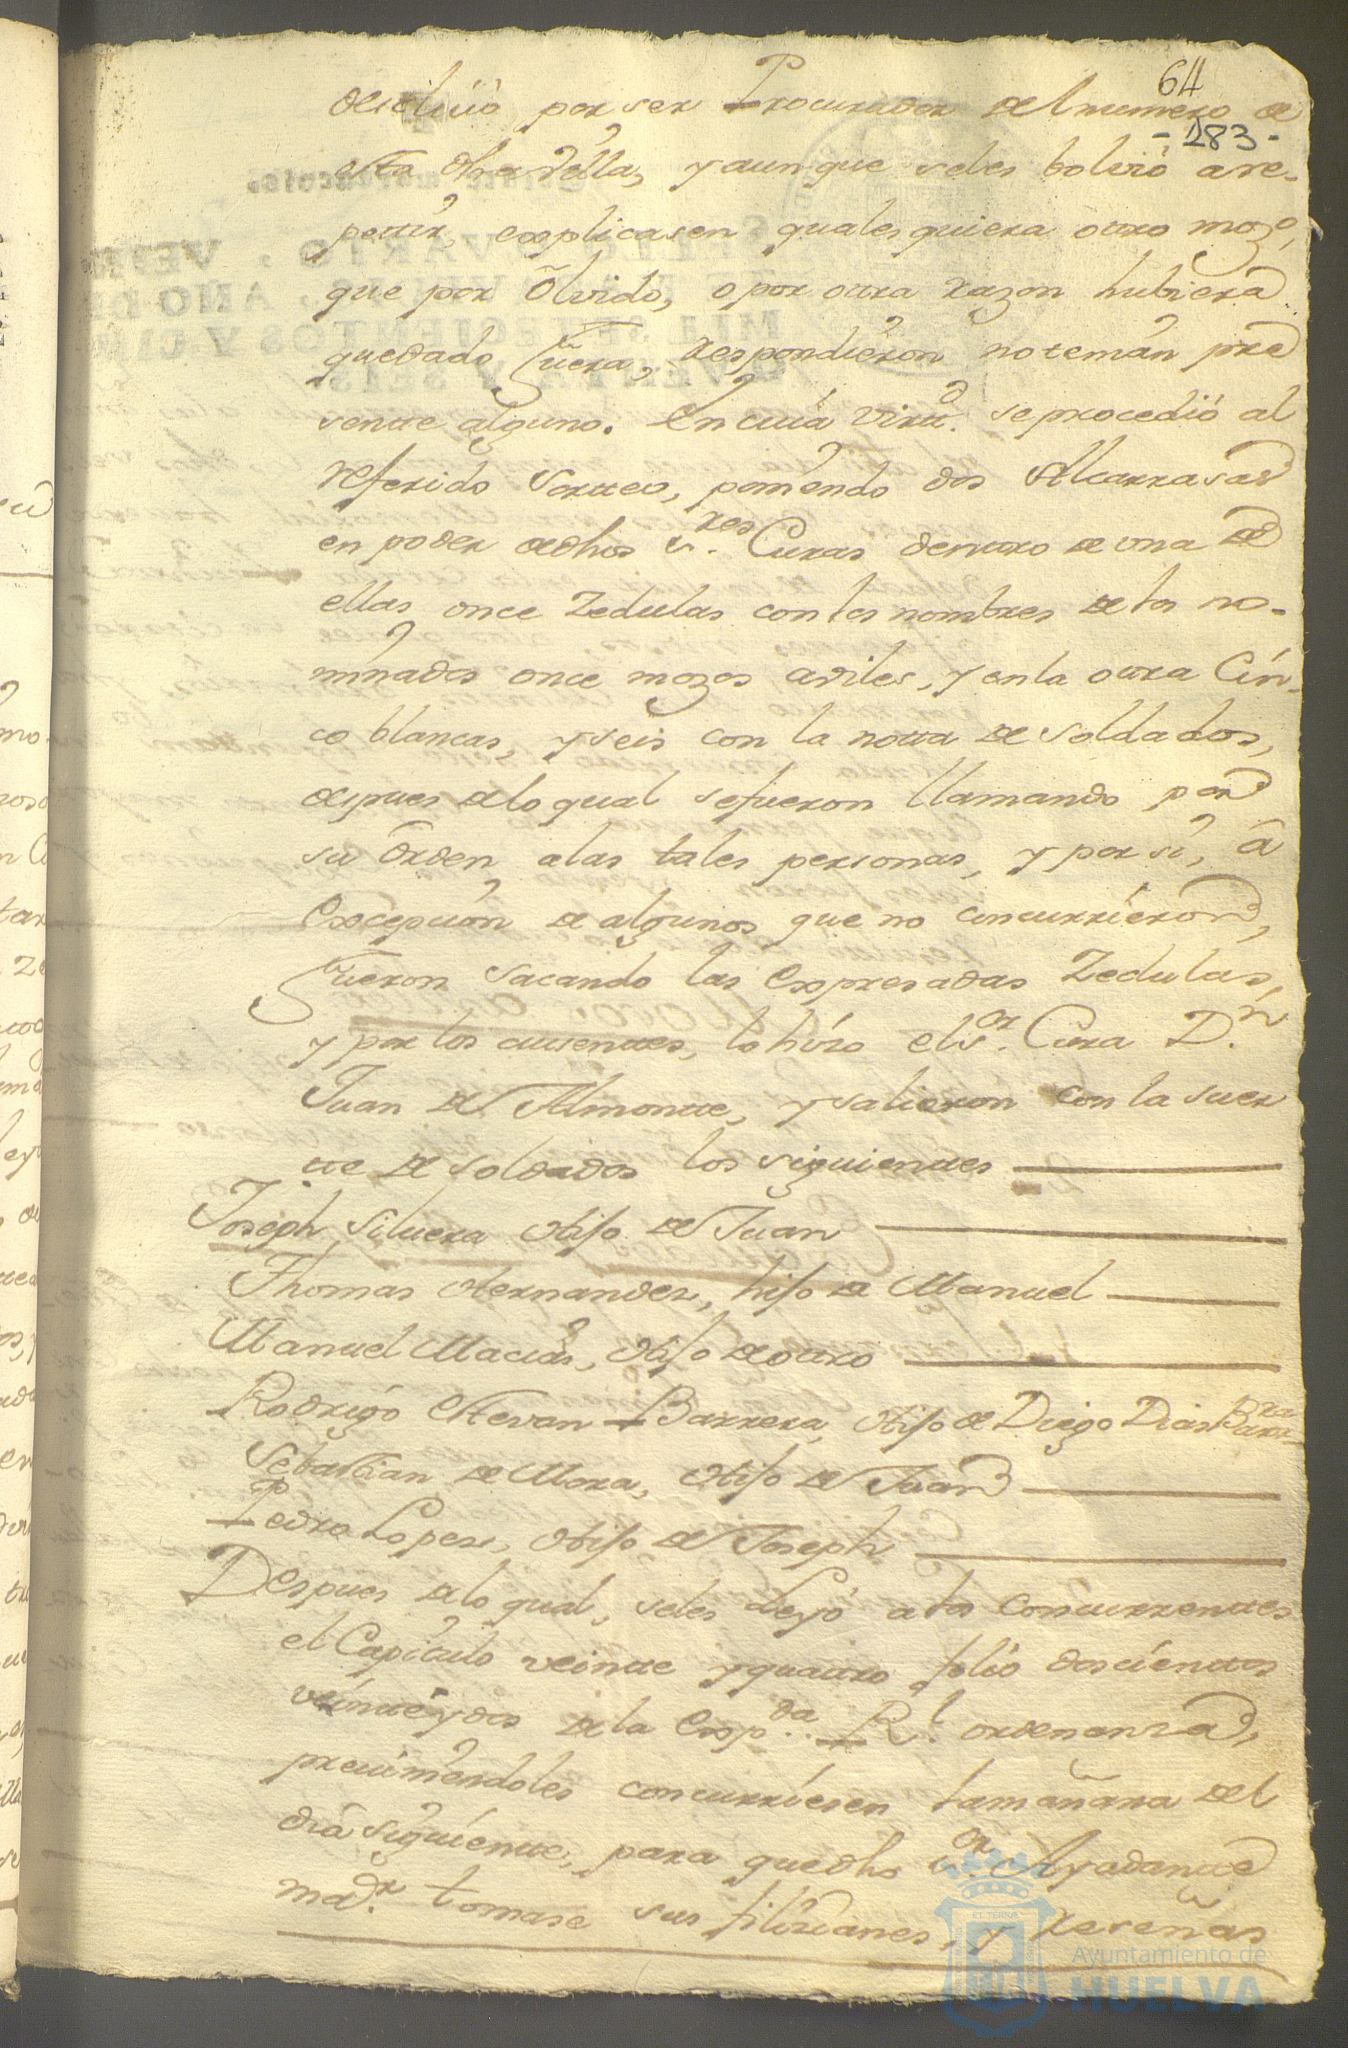 64
- 183 -
por ser Procurador del numero de
esta dha Villa, y aunque seles bolvió a re-
petir, explicasen quales quiera otro mozo,
que por olvido, o por otra razon hubiera
quedado fuera, respondieron no tenian pre
sente alguno. En cuia virtd. se procedió al
referido Sorteo, poniendo dos Alcarrasas
en poder de dhos Sres. Curas dentro de una de
ellas once Zedulas con los nombres de los no-
minados once mozos aviles, y en la otra Cin-
co blancas, y seis con la nota de Soldados,
despues de lo qual se fueron llamando por
su orden a las tales personas, y por sí, á
Excepción de algunos que no concurrieron,
fueron sacando las expresadas Zedulas,
y por los ausentes, lo hizo el Sor. Cura Dn.
Juan de Almonte, y salieron con la suer
te de soldados los siguientes
Joseph Siluera Hijo de Juan
Thomas Hernandez, hijo de Manuel
Manuel Macias, Hijo de otro
Rodrigo Estevan Barrera, Hijo de Diego Dias Barra
Sebastian de Mora, Hijo de Juan
Pedro Lopez, Hijo de Joseph
Despues de lo qual, seles Leyó a los Concurrentes
el Capitulo veinte y quatro folio doscientos
veinte y dos de la Expda. Rl. ordenanza,
previniendoles concurriesen la mañana del
dia siguiente, para que dho Sor. Ayudante
mor. tomase sus filiaciones, y reseñas
Ayuntamiento de
HUELVA